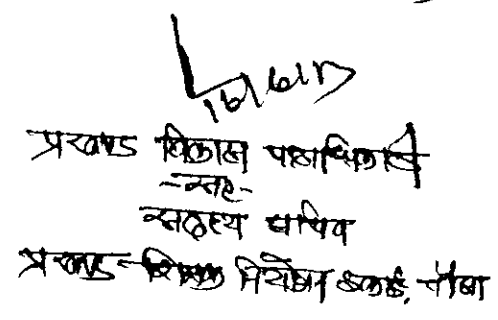 प्रखण्ड विकास पदाधिकारी
-सह-
सदस्य सचिव
प्रखण्ड शिक्षक नियोजन इकाई,